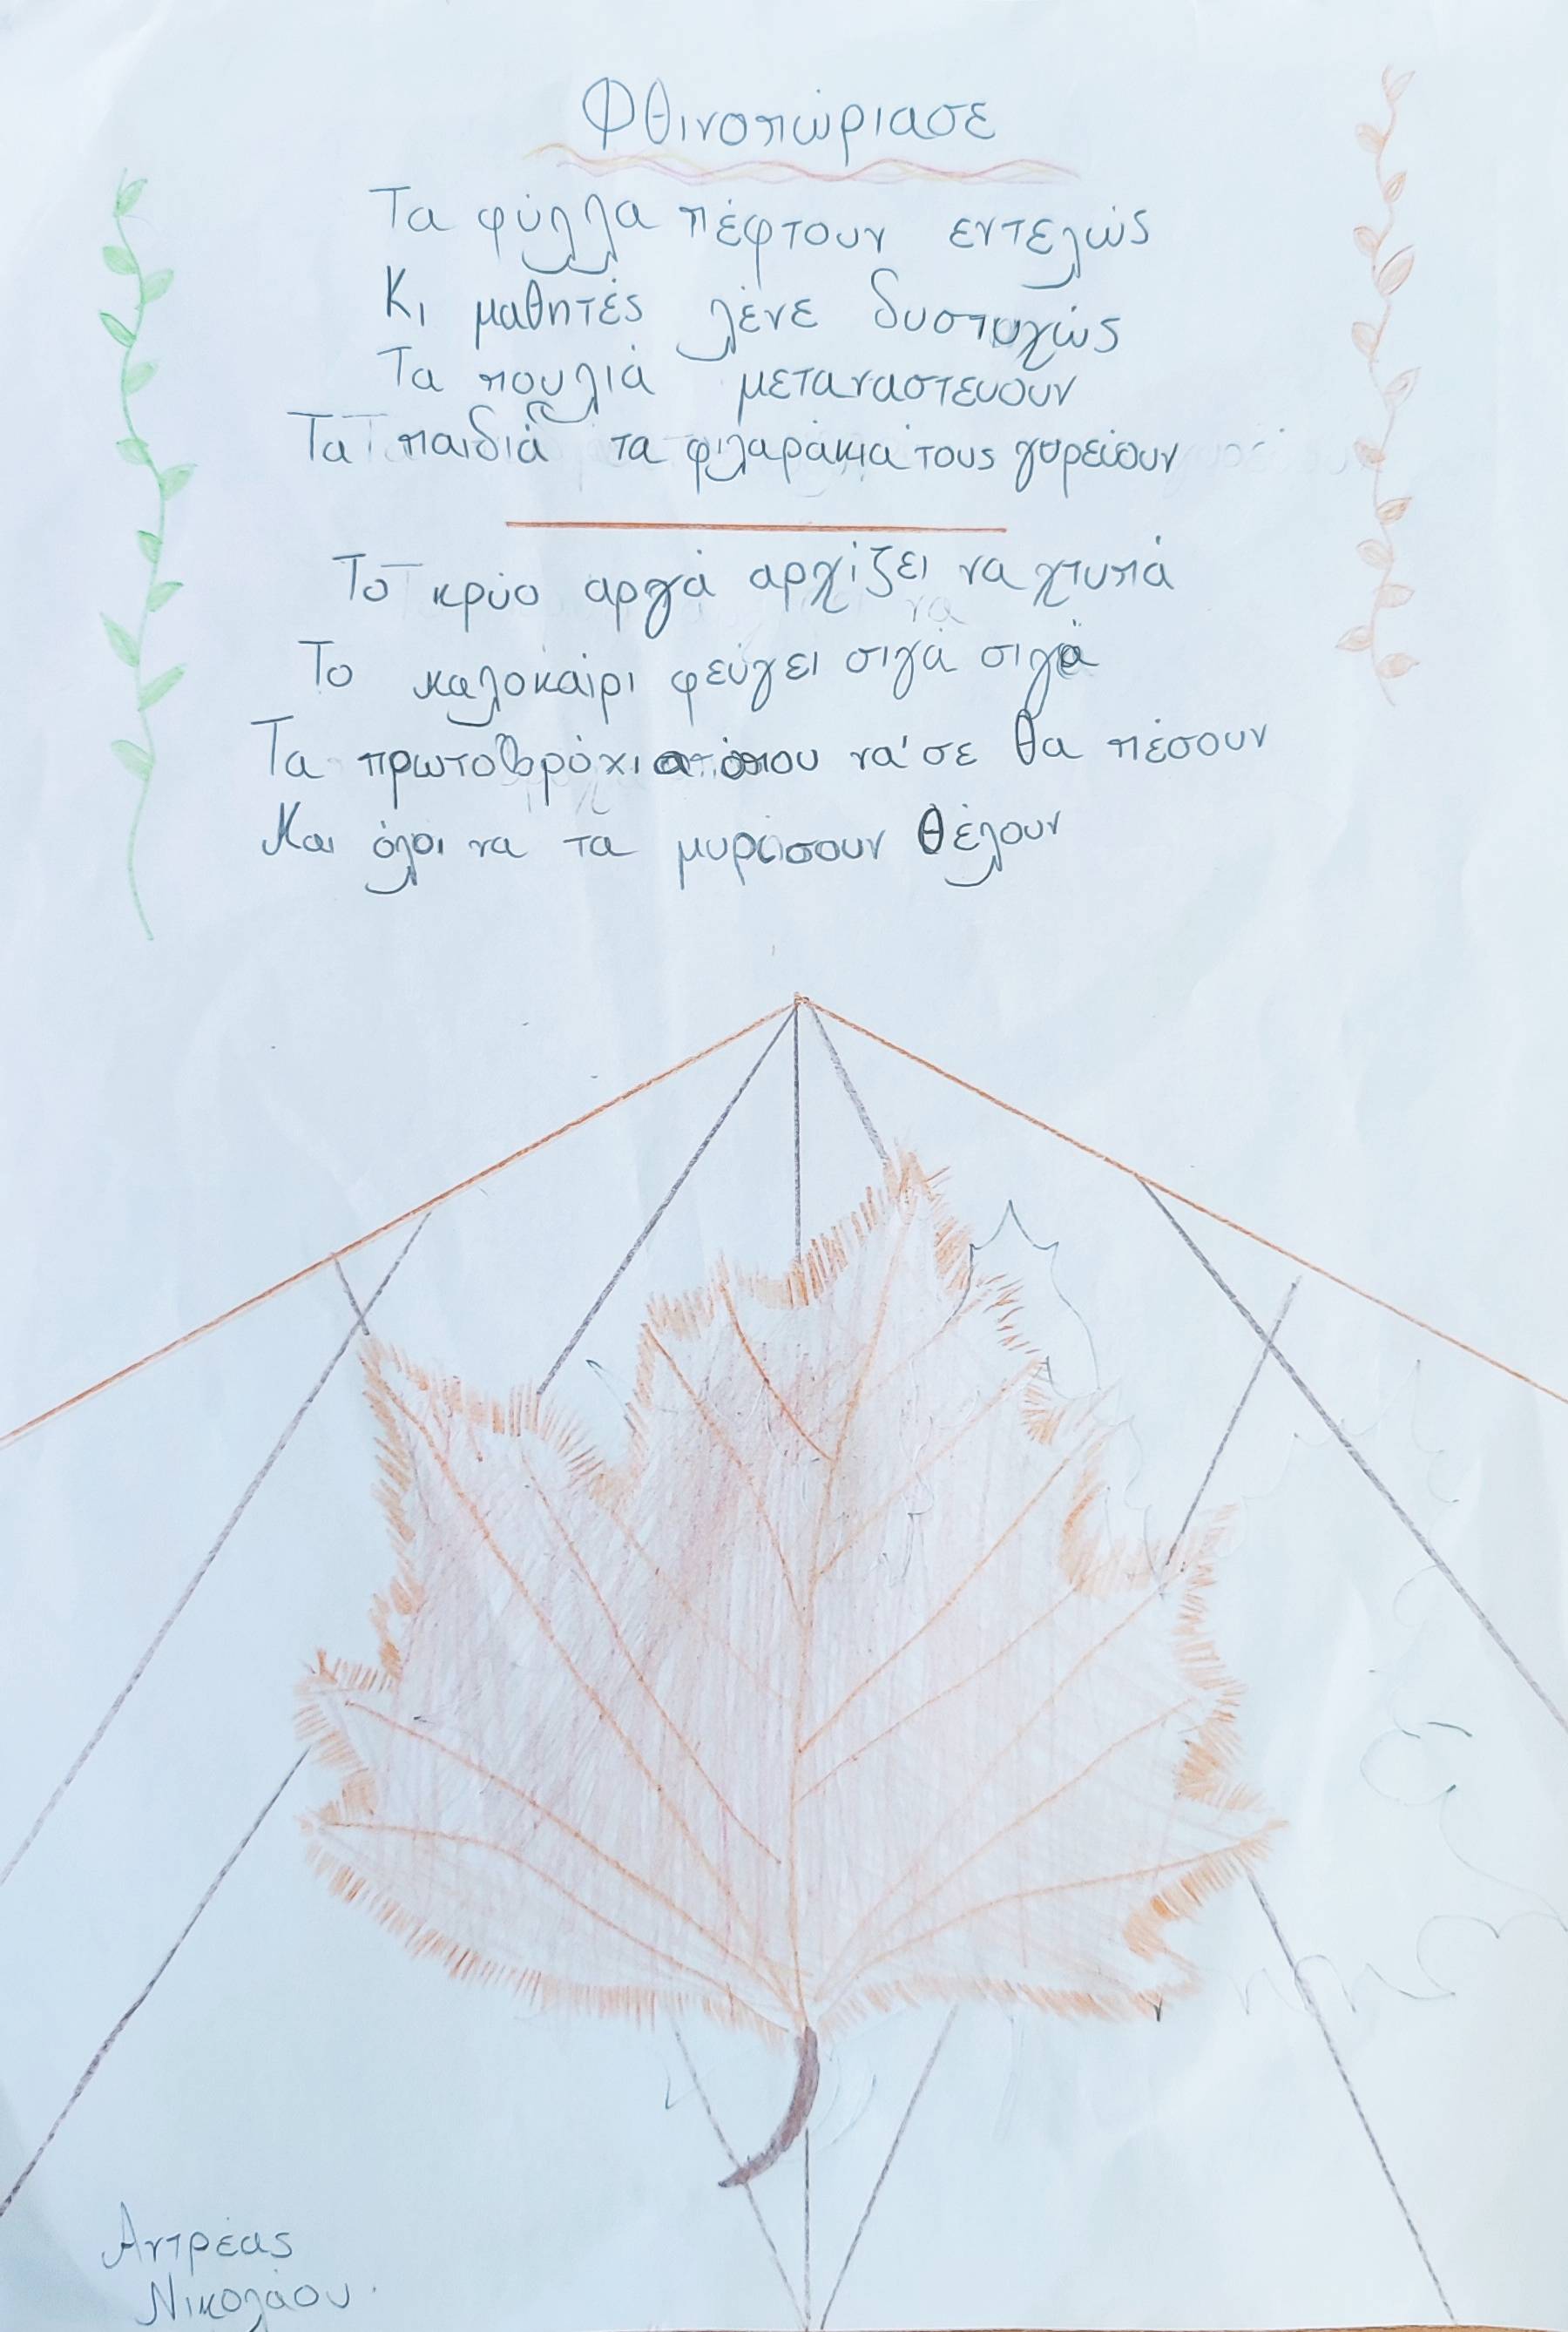 Φθινοπώριασε
Τα φύλλα πέφτουν εντελώς
Κι μαθητές λένε δυστυχώς
Τα πουλιά μεταναστεύουν
Τα παιδιά τα φιλαράκια τους γυρεύουν
Το κρύο αργά αρχίζει να χτυπά
Το καλοκαίρι φεύγει σιγά σιγά
Τα πρωτοβρόχια όπου να'σε θα πέσουν
Και όλοι να τα μυρίσουν θέλουν
Αντρέας
Νικολάου